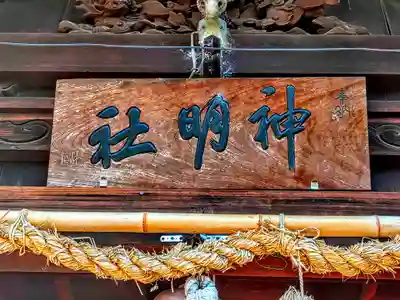 神明社